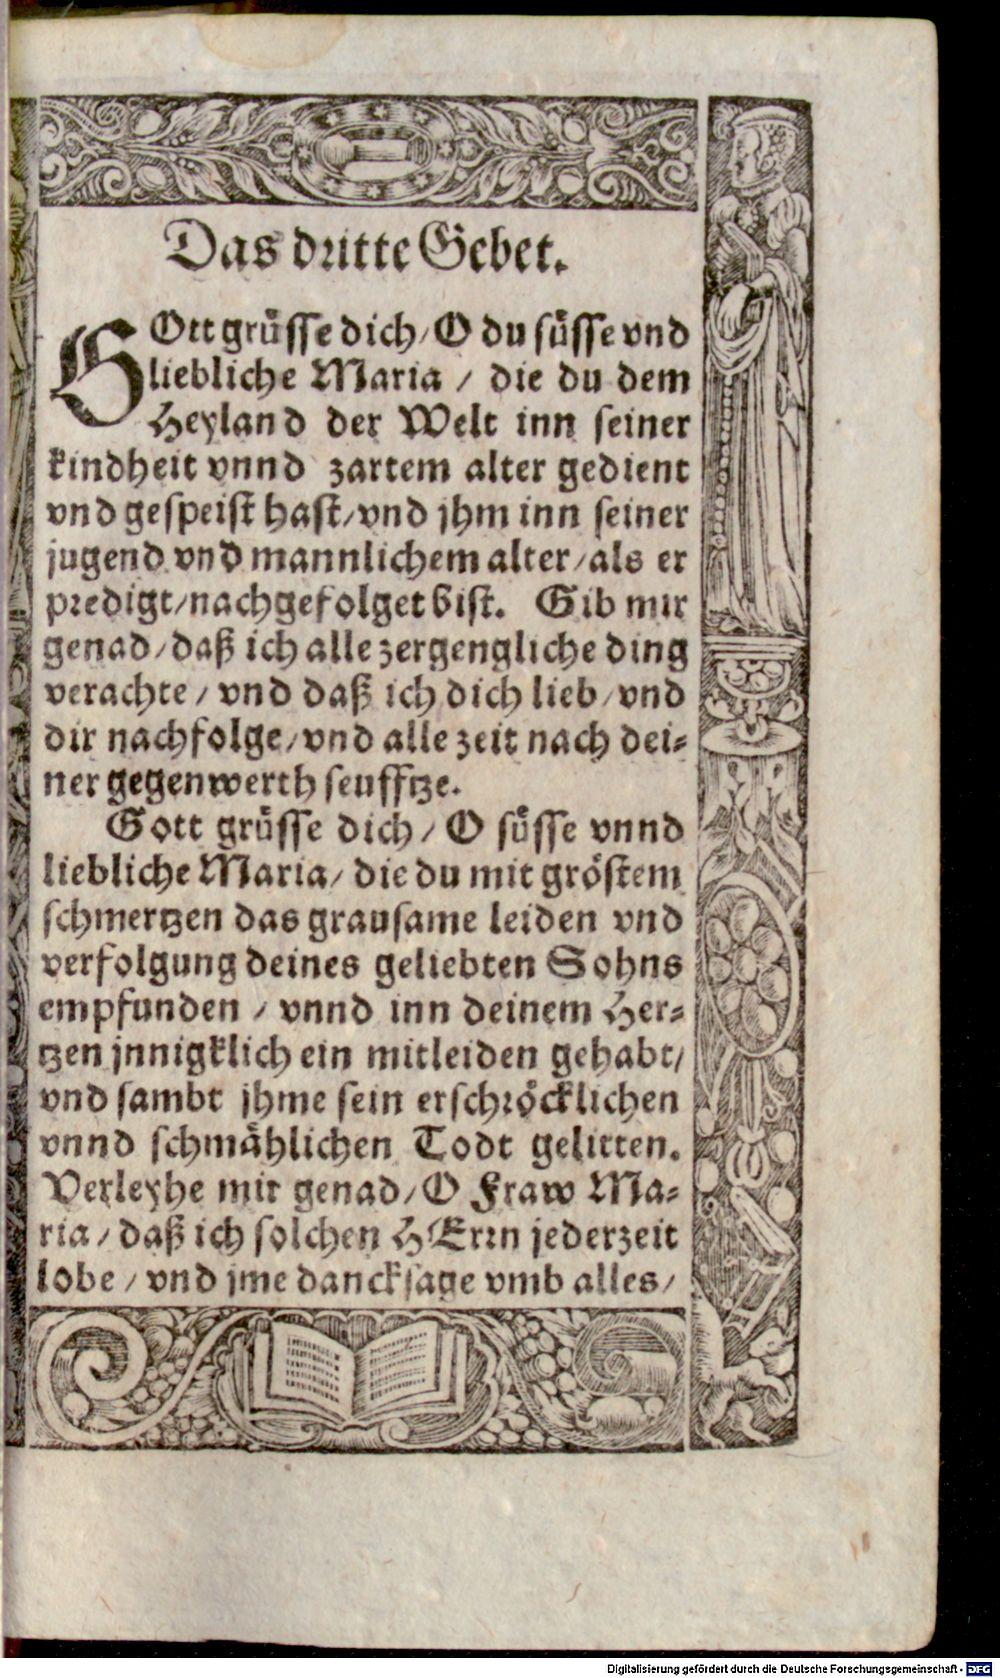 Das dritte Gebet.
GOtt grüsse dich/ O du süsse vnd
liebliche Maria / die du dem
Heyland der Welt inn seiner
kindheit vnnd zartem alter gedient
vnd gespeist hast/ vnd jhm inn seiner
jugend vnd mannlichem alter/ als er
predigt/ nachgefolget bist. Gib mir
genad/ daß ich alle zergengliche ding
verachte / vnd daß ich dich lieb/ vnd
dir nachfolge/ vnd alle zeit nach dei-
ner gegenwerth seufftze.
Gott grüsse dich / O süsse vnnd
liebliche Maria/ die du mit gröstem
schmertzen das grausame leiden vnd
verfolgung deines geliebten Sohns
empfunden / vnnd inn deinem Her-
tzen jnnigklich ein mitleiden gehabt/
vnd sambt jhme sein erschröcklichen
vnnd schmählichen Todt gelitten.
Verleyhe mir genad/ O Fraw Ma-
ria / daß ich solchen HErrn jederzeit
lobe / vnd jme dancksage vmb alles/
Digitalisierung gefördert durch die Deutsche Forschungsgemeinschaft - DFG